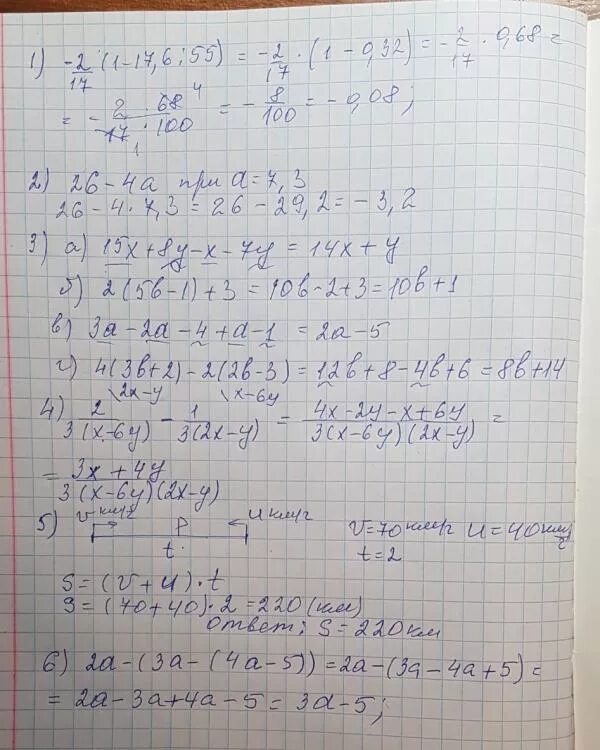 1) -2/17 (1-17,6:55) = -2/17 · (1-0,32) = -2/17 · 0,68 =
= - 2 · 68 4 / 17 1 · 100 = - 8/100 = -0,08;
2) 26-4a при a=7,3
26-4·7,3=26-29,2=-3,2
3) а) 15x+8y-x-7y=14x+y
б) 2(5b-1)+3=10b-2+3=10b+1
в) 3a-2a-4+a-1=2a-5
г) 4(3b+2)-2(2b-3)=12b+8-4b+6=8b+14
4) 2 \2x-y / 3(x-6y) - 1 \x-6y / 3(2x-y) = 4x-2y-x+6y / 3(x-6y)(2x-y) =
= 3x+4y / 3(x-6y)(2x-y)
5) v км/г P u км/г V=70 км/г U=40 км/г
t. t=2
S=(V+U)·t
S=(70+40)·2=220(км)
Ответ: S=220км
6) 2a-(3a-(4a-5))=2a-(3a-4a+5)=
=2a-3a+4a-5=3a-5;